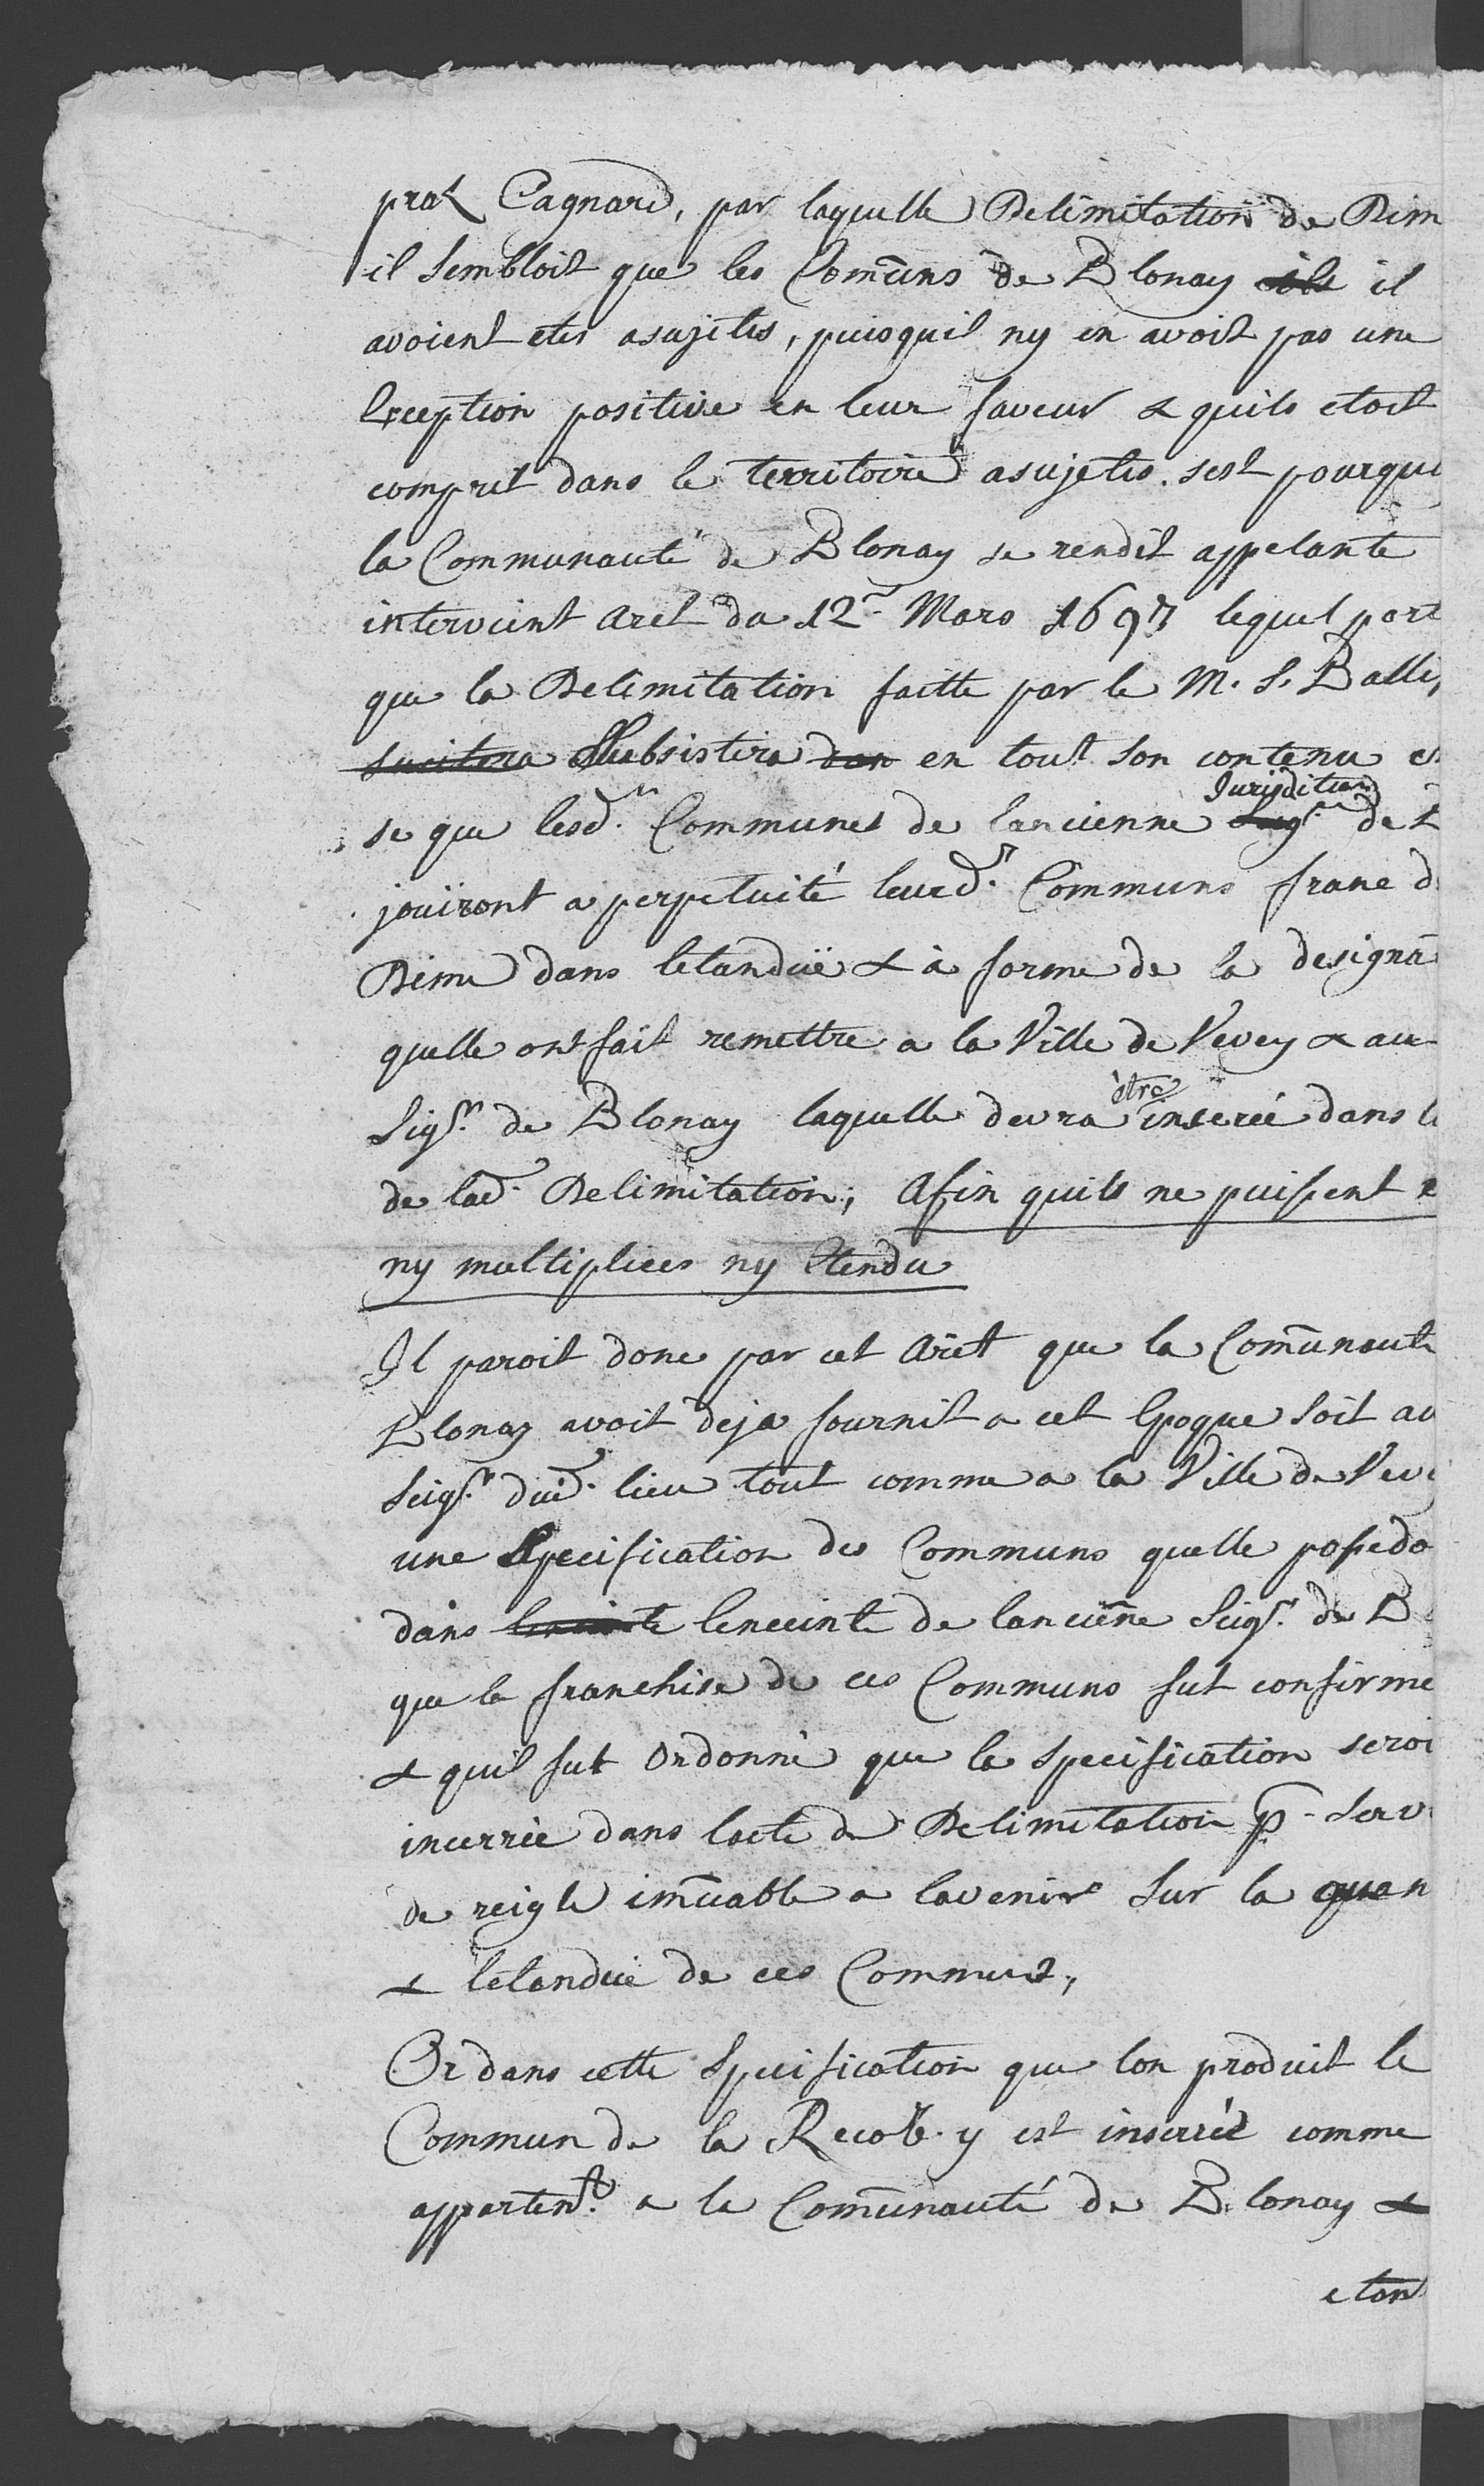 praz Cagnard, par laquelle Delimitation de Dim
il sembloit que les Com̄uns de Blonay ils il
avoient etés asujetis, puisquil ny en avoit pas une
Exception positive en leur faveur & quils etoit
comprit dans le territoire asujetis. sest pourquo
la Communauté de Blonay se rendit appelante
intervient aret du 12e Mars 1697 lequel port
que la Delimitation faitte par le M. S. Balli,
Subsistira dan en tout son contenu et
se que lesd.es Communes de l'ancienne Jurisdition de
joüiront a perpetuité leurd.s Communs franc d
Dime dans letanduë & à forme de la designa
quelle ont fait remettre a la Ville de Vevey & au
Sigr. de Blonay laquelle devra être inserée dans l
de lad. Delimitation; Afin quils ne puissent
ny multiplices ny Etendu
Il paroit donc par cet Arêt que la Com̄unaute
Blonay avoit deja fournit a cet Epoque soit au
Seigr. dud. lieu tout comme a la Ville de Veve
une Specification des Communs quelle possedo
dans lenceinte de lancien̄e Seigr. de B
que la franchise de ces Communs fut confirme
& quil fut Ordonné que la specification seroi
incerrée dans lacte de Delimitation p. serv
de reigle im̄uable a lavenir sur la quan
& letandue de ces Communs,
Or dans cette Specification que lon produit le
Commun de la Recob. y est inserréé comme
appartent. a la Com̄unauté de Blonay &
eton